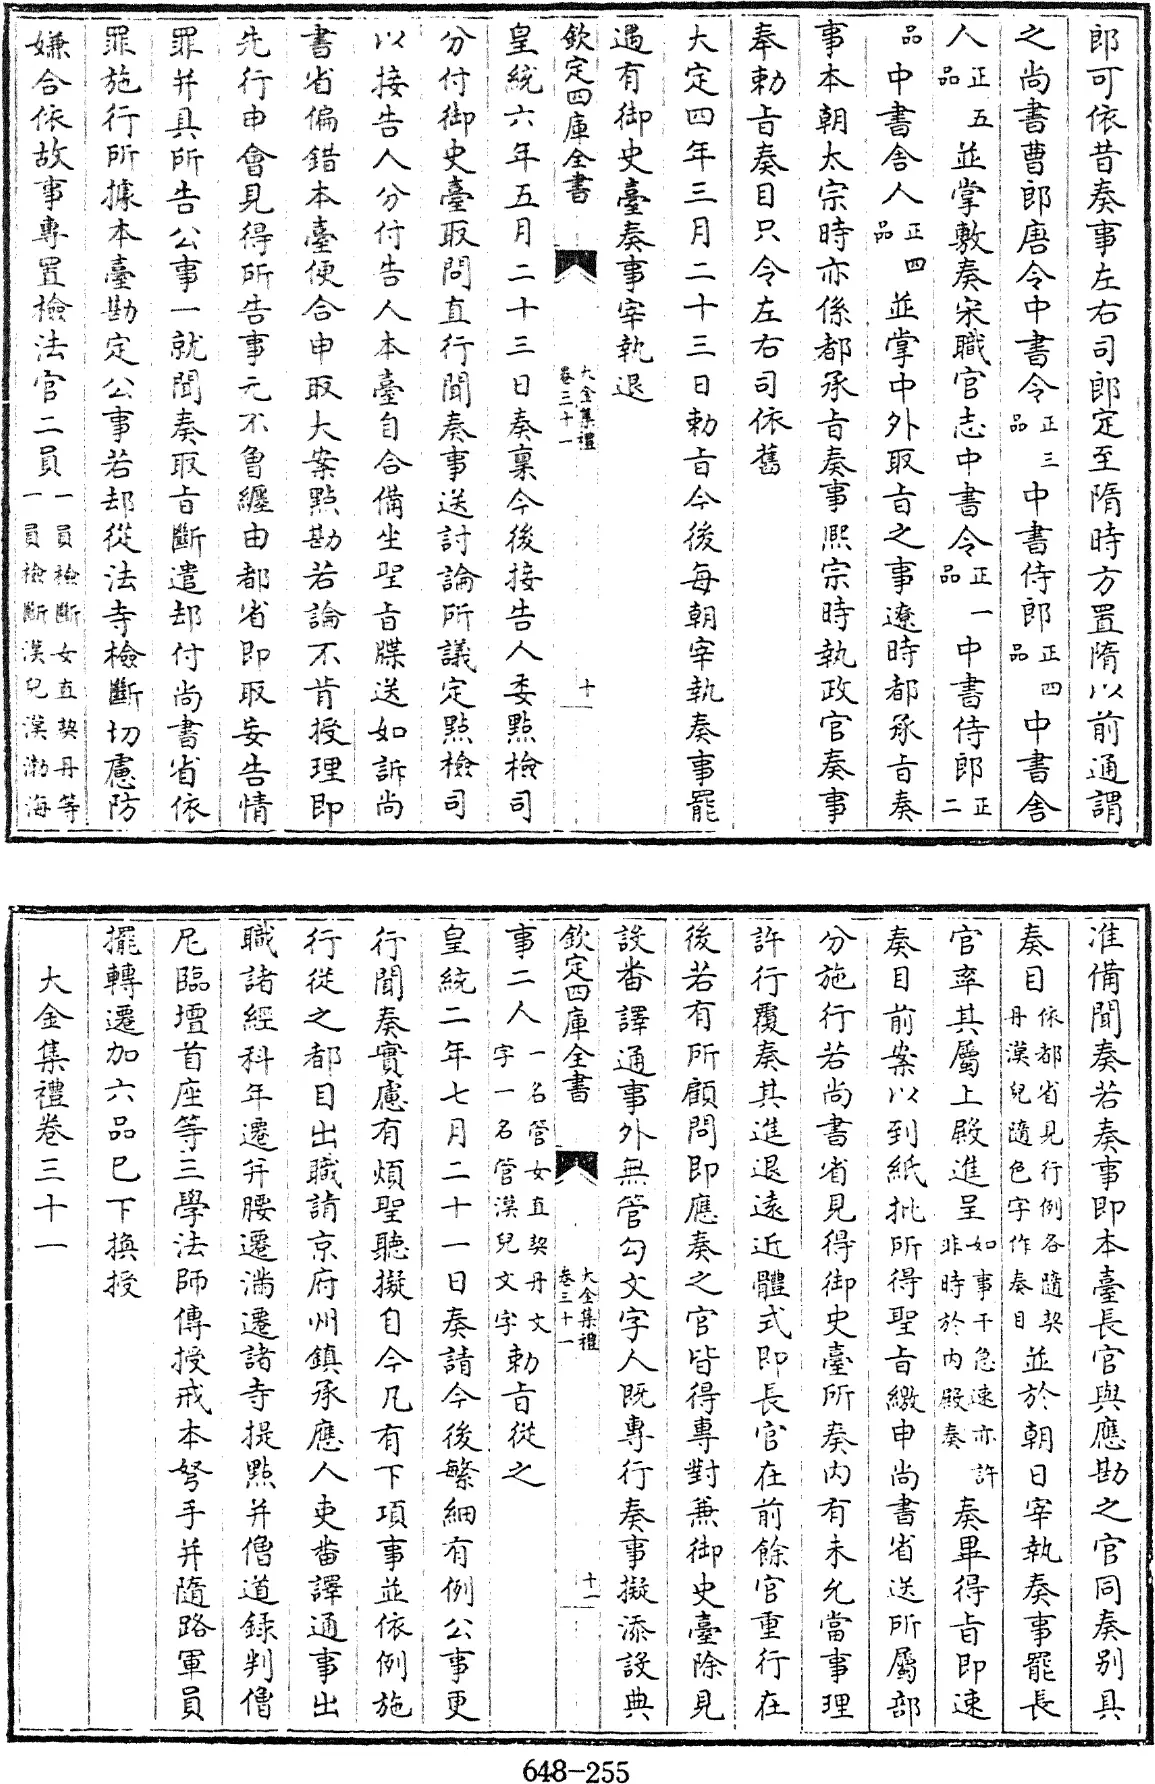 郎可依昔奏事左右司郎定至隋時方置隋以前通謂
之尚書曹郎唐令中書令正三品中書侍郎正四品中書舍
人正五品並掌敷奏宋職官志中書令正一品中書侍郎正二
品中書舍人正四品並掌中外取旨之事遼時都承旨奏
事本朝太宗時亦係都承旨奏事熙宗時執政官奏事
奉勅旨奏目只令左右司依舊
大定四年三月二十三日勅旨今後每朝宰執奏事罷
遇有御史臺奏事宰執退
欽定四庫全書
大金集禮
卷三十一
十
皇統六年五月二十三日奏稟今後接告人委點檢司
分付御史臺取問直行聞奏事送討論所議定點檢司
以接告人分付告人本臺自合備坐聖旨牒送如訴尚
書省偏錯本臺便合申取大案點勘若論不肯授理即
先行申會見得所告事元不魯纏由都省即取妄告情
罪并具所告公事一就聞奏取旨斷遣却付尚書省依
罪施行所據本臺勘定公事若却從法寺檢斷切慮防
嫌合依故事專置檢法官二員一員檢斷女直契丹等一員檢斷漢兒漢渤海
准備聞奏若奏事即本臺長官與應勘之官同奏別具
奏目依都省見行例各隨契丹漢兒隨色字作奏目並於朝日宰執奏事罷長
官率其屬上殿進呈如事干急速亦許非時於內殿奏奏畢得旨即速
奏目前案以到紙批所得聖旨繳申尚書省送所屬部
分施行若尚書省見得御史臺所奏內有未允當事理
許行覆奏其進退遠近體式即長官在前餘官重行在
後若有所顧問即應奏之官皆得專對兼御史臺除見
設畨譯通事外無管勾文字人既專行奏事擬添設典
欽定四庫全書
大金集禮
卷三十一
十一
事二人一名管女直契丹文字一名管漢兒文字勅旨從之
皇統二年七月二十一日奏請今後繁細有例公事更
行聞奏實慮有煩聖聽擬自今凡有下項事並依例施
行從之都目出職請京府州鎮承應人吏畨譯通事出
職諸經科年遷并腰遷滿遷諸寺提點并僧道錄判僧
尼臨壇首座等三學法師傳授戒本弩手并隨路軍員
擺轉遷加六品已下換授
大金集禮卷三十一
648-255